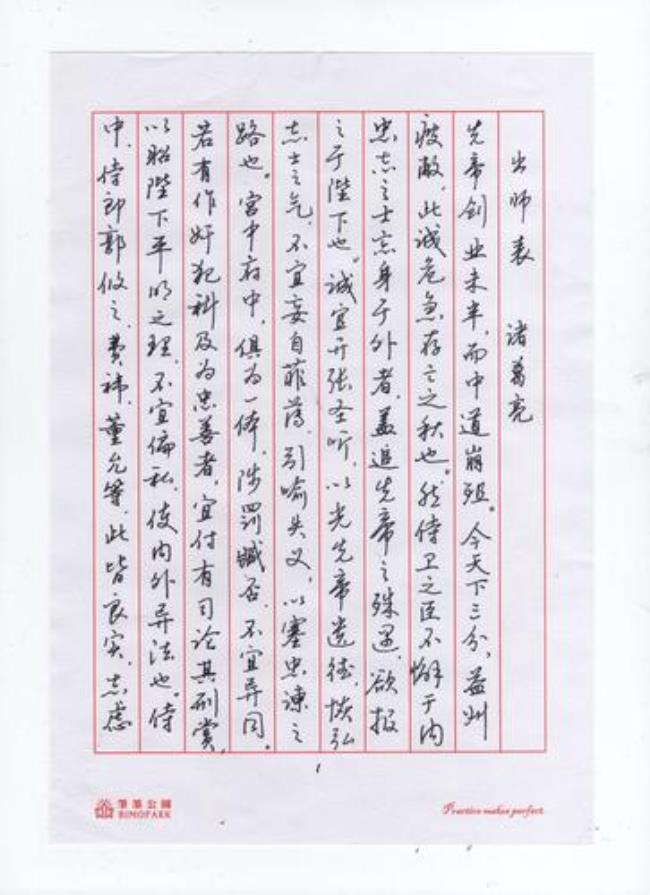 出师表 诸葛亮
先帝创业未半，而中道崩殂。今天下三分，益州
疲敝，此诚危急存亡之秋也。然侍卫之臣不懈于内
忠志之士忘身于外者，盖追先帝之殊遇，欲报
之于陛下也。诚宜开张圣听，以光先帝遗德，恢弘
志士之气，不宜妄自菲薄，引喻失义，以塞忠谏之
路也。宫中府中，俱为一体，陟罚臧否，不宜异同。
若有作奸犯科及为忠善者，宜付有司论其刑赏，
以昭陛下平明之理，不宜偏私，使内外异法也。侍
中、侍郎郭攸之、费祎、董允等，此皆良实，志虑
1
笔墨公园
BIMOPARK
Practice makes perfect